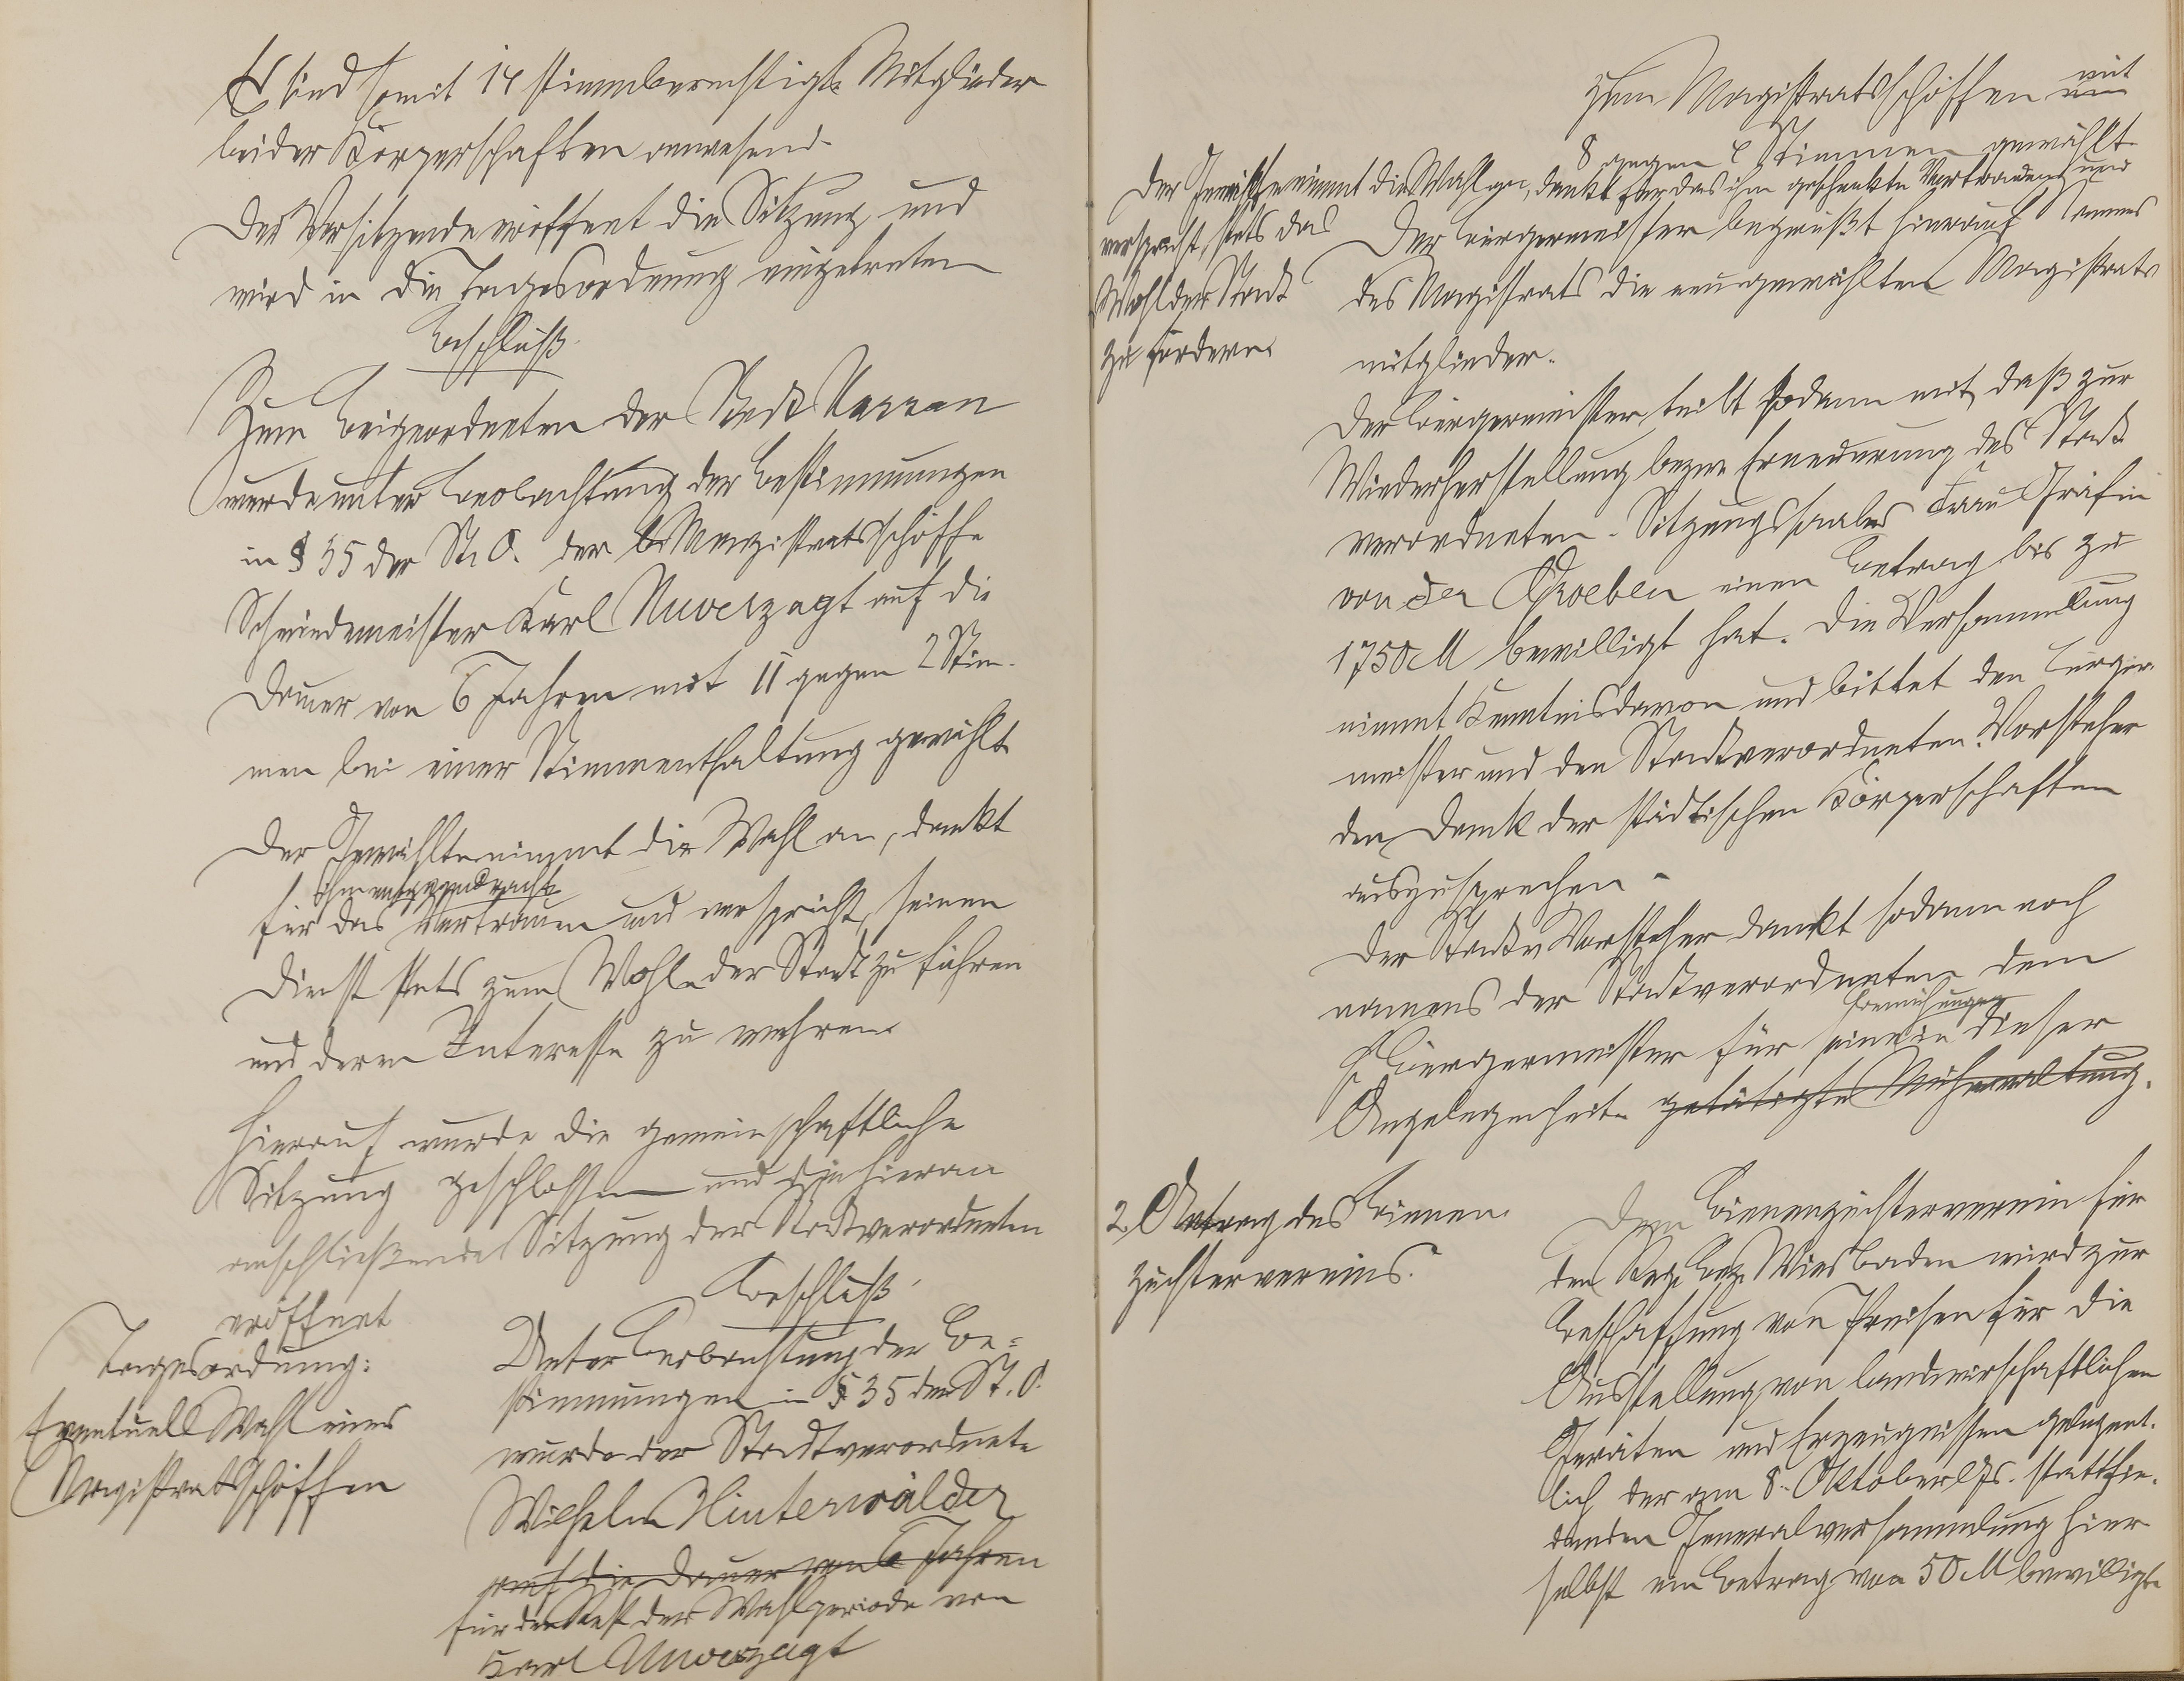 Es sind somit 14 stimmberechtigte Mitglieder
beider Körperschaften anwesend.
Der Vorsitzende eröffnet die Sitzung und
wird in die Tagesordnung eingetreten
Beschluß.
Zum Beigeordneten der Stadt
wurde unter Beobachtung der Bestimmungen
in § 35 der St. O. der Magistratsschöffe
Schmiedemeister Karl Unverzagt auf die
Dauer von 6 Jahren mit 11 gegen 2 Stim-
men bei einer Stimmenthaltung gewählt.
Der Gewählte nimmt die Wahl an, dankt
ihm entgegengebrachte
für das Vertrauen und verspricht, seinen
Dienst stets zum Wohle der Stadt zu führen
und deren Interesse zu wahren.
Hierauf wurde die gemeinschaftliche
Sitzung geschlossen und die hieran
anschließende Sitzung der Stadtverordneten
eröffnet
Tagesordnung:
Eventuell Wahl eines
Magistratsschöffen
Beschluß.
Unter Beobachtung der Be-
stimmungen in § 35 der St. O.
wurde der Stadtverordnete
Wilhelm Hinterwälder
auf die Dauer von 6 Jahren
für den Rest der Wahlperiode von
Karl Unverzagt
zum Magistratsschöffen mit
8 gegen Stimmen gewählt.
Der Gewählte nimmt die Wahl an, dankt für das ihm geschenkte Vertrauen und
verspricht, stets das
Wohl der Stadt
zu fördern.
Der Bürgermeister begrüßt hierauf Namens
des Magistrats die neugewählten Magistrats
mitglieder.
Der Bürgermeister teilt sodann mit, daß zur
Wiederherstellung bezw. Erneuerung des Stadt
verordneten-Sitzungssaales Frau Gräfin
von der Groeben einen Betrag bis zu
1750 M bewilligt hat. Die Versammlung
nimmt Kenntnis davon und bittet den Bürger-
meister und den Stadtverordneten-Vorsteher
den Dank der städtischen Körperschaften
auszusprechen.
Der Stadtv. Vorsteher dankt sodann noch
namens der Stadtverordneten dem
Bemühungen
H. Bürgermeister für seine in dieser
Angelegenheit getätigte Mühewaltung.
2. Antrag des Bienen-
züchtervereins.
Dem Bienenzüchterverein für
den Reg. Bez. Wiesbaden wird zur
Beschaffung von Preisen für die
Ausstellung von landwirtschaftlichen
Geräten und Erzeugnissen gelegent-
lich der am 8. Oktober lfd. Js. stattfin-
denden Generalversammlung hier-
selbst ein Betrag von 50 M bewilligt.